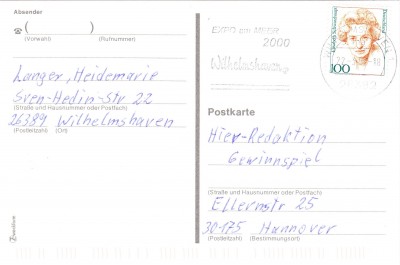 Absender
(Vorwahl) (Rufnummer)
Langer, Heidemarie
Sven-Hedin-Str 22
(Straße und Hausnummer oder Postfach)
26389 Wilhelmshaven
(Postleitzahl) (Ort)
EXPO am MEER
2000
Wilhelmshaven
100
Postkarte
Hier-Redaktion
Gewinnspiel
(Straße und Hausnummer oder Postfach)
Ellernstr 25
30175 Hannover
(Postleitzahl) (Bestimmungsort)